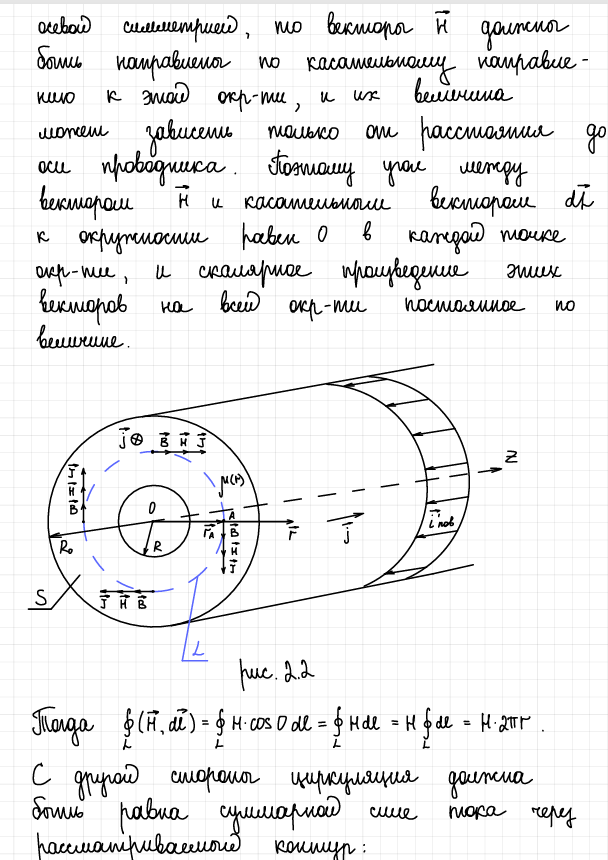 осевой симметрией, то векторы H⃗ должны
быть направлены по касательному направле-
нию к этой окр-ти, и их величина
может зависеть только от расстояния до
оси проводника. Поэтому угол между
вектором H⃗ и касательным вектором dL⃗
к окружности равен 0 в каждой точке
окр-ти, и скалярное произведение этих
векторов на всей окр-ти постоянное по
величине.
j⃗ ⊗ B⃗ H⃗ J⃗
J⃗
H⃗
B⃗
μ(r)
z
O
A
r⃗A
B⃗
H⃗
J⃗
r⃗
j⃗
i⃗ пов
R₀
R
S
J⃗ H⃗ B⃗
L
рис. 2.2
Тогда ∮L (H⃗, dl⃗) = ∮L H·cos 0 dl = ∮L H dl = H ∮L dl = H·2πr.
С другой стороны циркуляция должна
быть равна суммарной силе тока через
рассматриваемый контур: